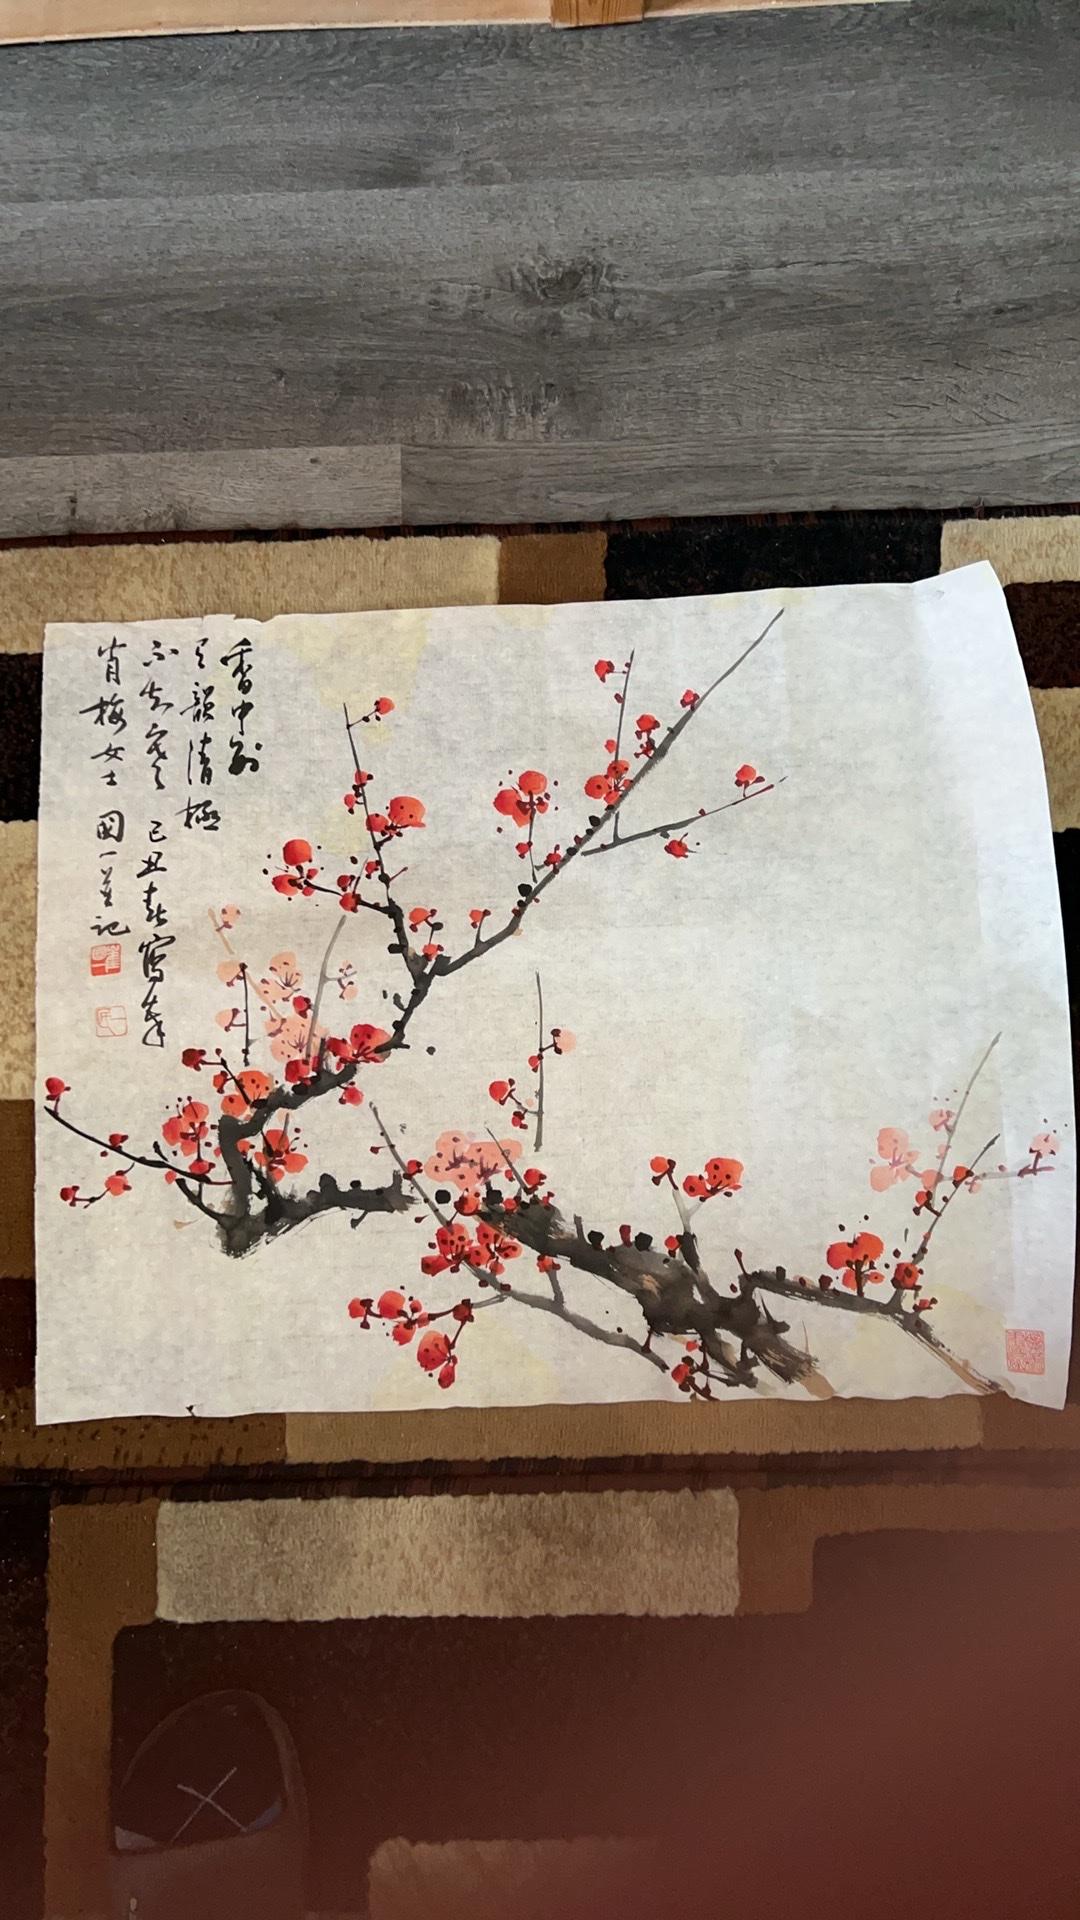 香中别
有韻清極
不知寒 己丑春寫奉
肖梅女士 國一並記